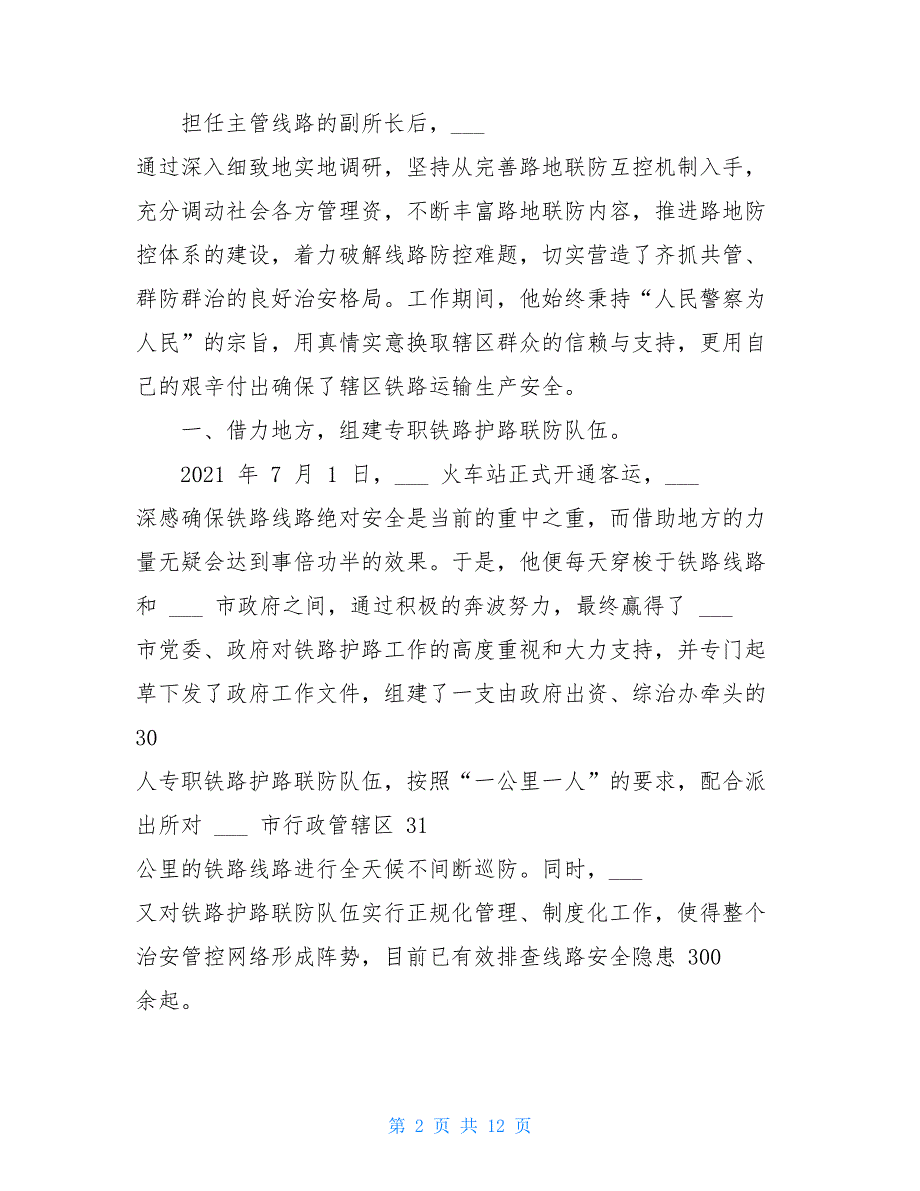 担任主管线路的副所长后，___
通过深入细致地实地调研，坚持从完善路地联防互控机制入手，
充分调动社会各方管理资，不断丰富路地联防内容，推进路地防
控体系的建设，着力破解线路防控难题，切实营造了齐抓共管、
群防群治的良好治安格局。工作期间，他始终秉持“人民警察为
人民”的宗旨，用真情实意换取辖区群众的信赖与支持，更用自
己的艰辛付出确保了辖区铁路运输生产安全。
一、借力地方，组建专职铁路护路联防队伍。
2021 年 7 月 1 日，___ 火车站正式开通客运，___
深感确保铁路线路绝对安全是当前的重中之重，而借助地方的力
量无疑会达到事倍功半的效果。于是，他便每天穿梭于铁路线路
和 ___ 市政府之间，通过积极的奔波努力，最终赢得了 ___
市党委、政府对铁路护路工作的高度重视和大力支持，并专门起
草下发了政府工作文件，组建了一支由政府出资、综治办牵头的
30
人专职铁路护路联防队伍，按照“一公里一人”的要求，配合派
出所对 ___ 市行政管辖区 31
公里的铁路线路进行全天候不间断巡防。同时，___
又对铁路护路联防队伍实行正规化管理、制度化工作，使得整个
治安管控网络形成阵势，目前已有效排查线路安全隐患 300
余起。
第 2 页 共 12 页